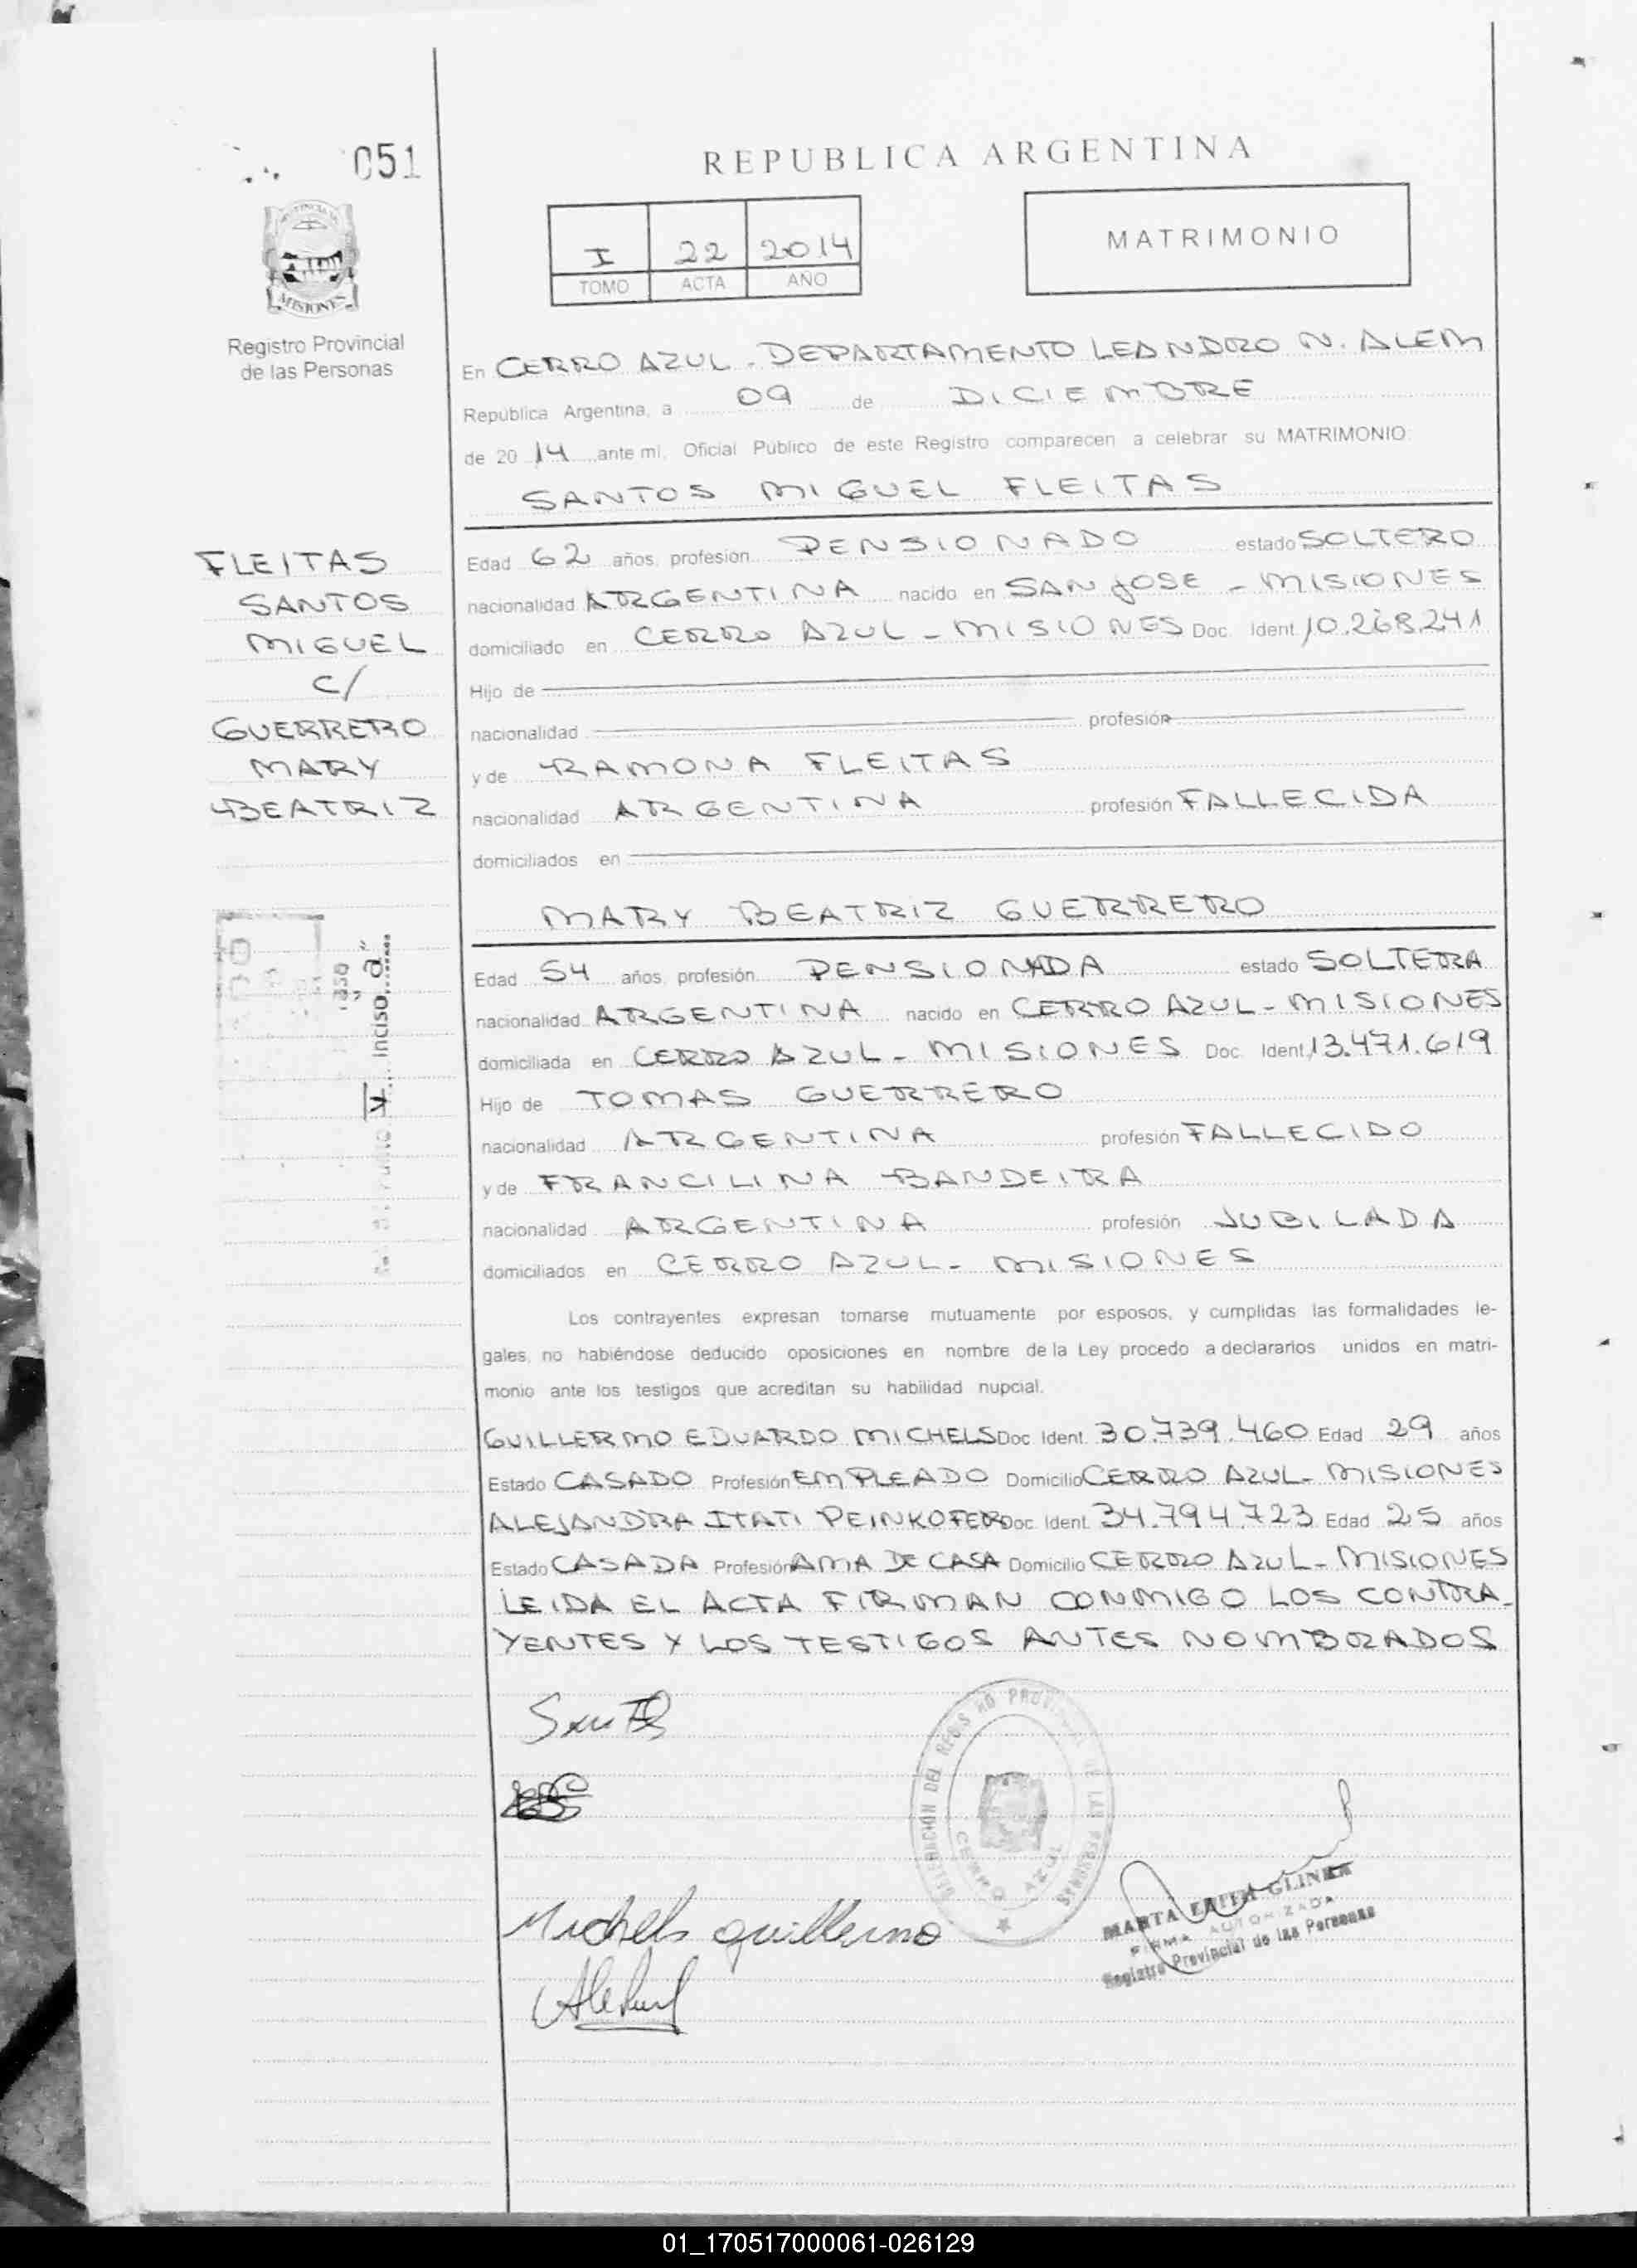 051
REPUBLICA ARGENTINA
PROVINCIA DE
MISIONES
Registro Provincial
de las Personas
I 22 2014
TOMO ACTA AÑO
MATRIMONIO
En CERRO AZUL - DEPARTAMENTO LEANDRO N. ALEM
República Argentina, a 09 de DICIEMBRE
de 2014 ante mi, Oficial Público de este Registro comparecen a celebrar su MATRIMONIO:
SANTOS MIGUEL FLEITAS
FLEITAS
SANTOS
MIGUEL
C/
GUERRERO
MARY
BEATRIZ
Edad 62 años, profesión PENSIONADO estado SOLTERO
nacionalidad ARGENTINA nacido en SAN JOSE - MISIONES
domiciliado en CERRO AZUL - MISIONES Doc. Ident. 10.268.241
Hijo de
nacionalidad profesión
y de RAMONA FLEITAS
nacionalidad ARGENTINA profesión FALLECIDA
domiciliados en
MARY BEATRIZ GUERRERO
inciso "a"
Edad 54 años, profesión PENSIONADA estado SOLTERA
nacionalidad ARGENTINA nacido en CERRO AZUL - MISIONES
domiciliada en CERRO AZUL - MISIONES Doc. Ident. 13.471.619
Hijo de TOMAS GUERRERO
nacionalidad ARGENTINA profesión FALLECIDO
y de FRANCILINA BANDEIRA
nacionalidad ARGENTINA profesión JUBILADA
domiciliados en CERRO AZUL - MISIONES
Los contrayentes expresan tomarse mutuamente por esposos, y cumplidas las formalidades le-
gales, no habiéndose deducido oposiciones en nombre de la Ley procedo a declararlos unidos en matri-
monio ante los testigos que acreditan su habilidad nupcial.
GUILLERMO EDUARDO MICHELS Doc. Ident. 30.739.460 Edad 29 años
Estado CASADO Profesión EMPLEADO Domicilio CERRO AZUL - MISIONES
ALEJANDRA ITATI PEINKOFER Doc. Ident. 34.794.723 Edad 25 años
Estado CASADA Profesión AMA DE CASA Domicilio CERRO AZUL - MISIONES
LEIDA EL ACTA FIRMAN CONMIGO LOS CONTRA-
YENTES Y LOS TESTIGOS ANTES NOMBRADOS
DELEGACION DEL REGISTRO PROVINCIAL DE LAS PERSONAS
CERRO AZUL
Michels guillermo
MARTA EDITH GLINKA
FIRMA AUTORIZADA
Registro Provincial de las Personas
01_170517000061-026129